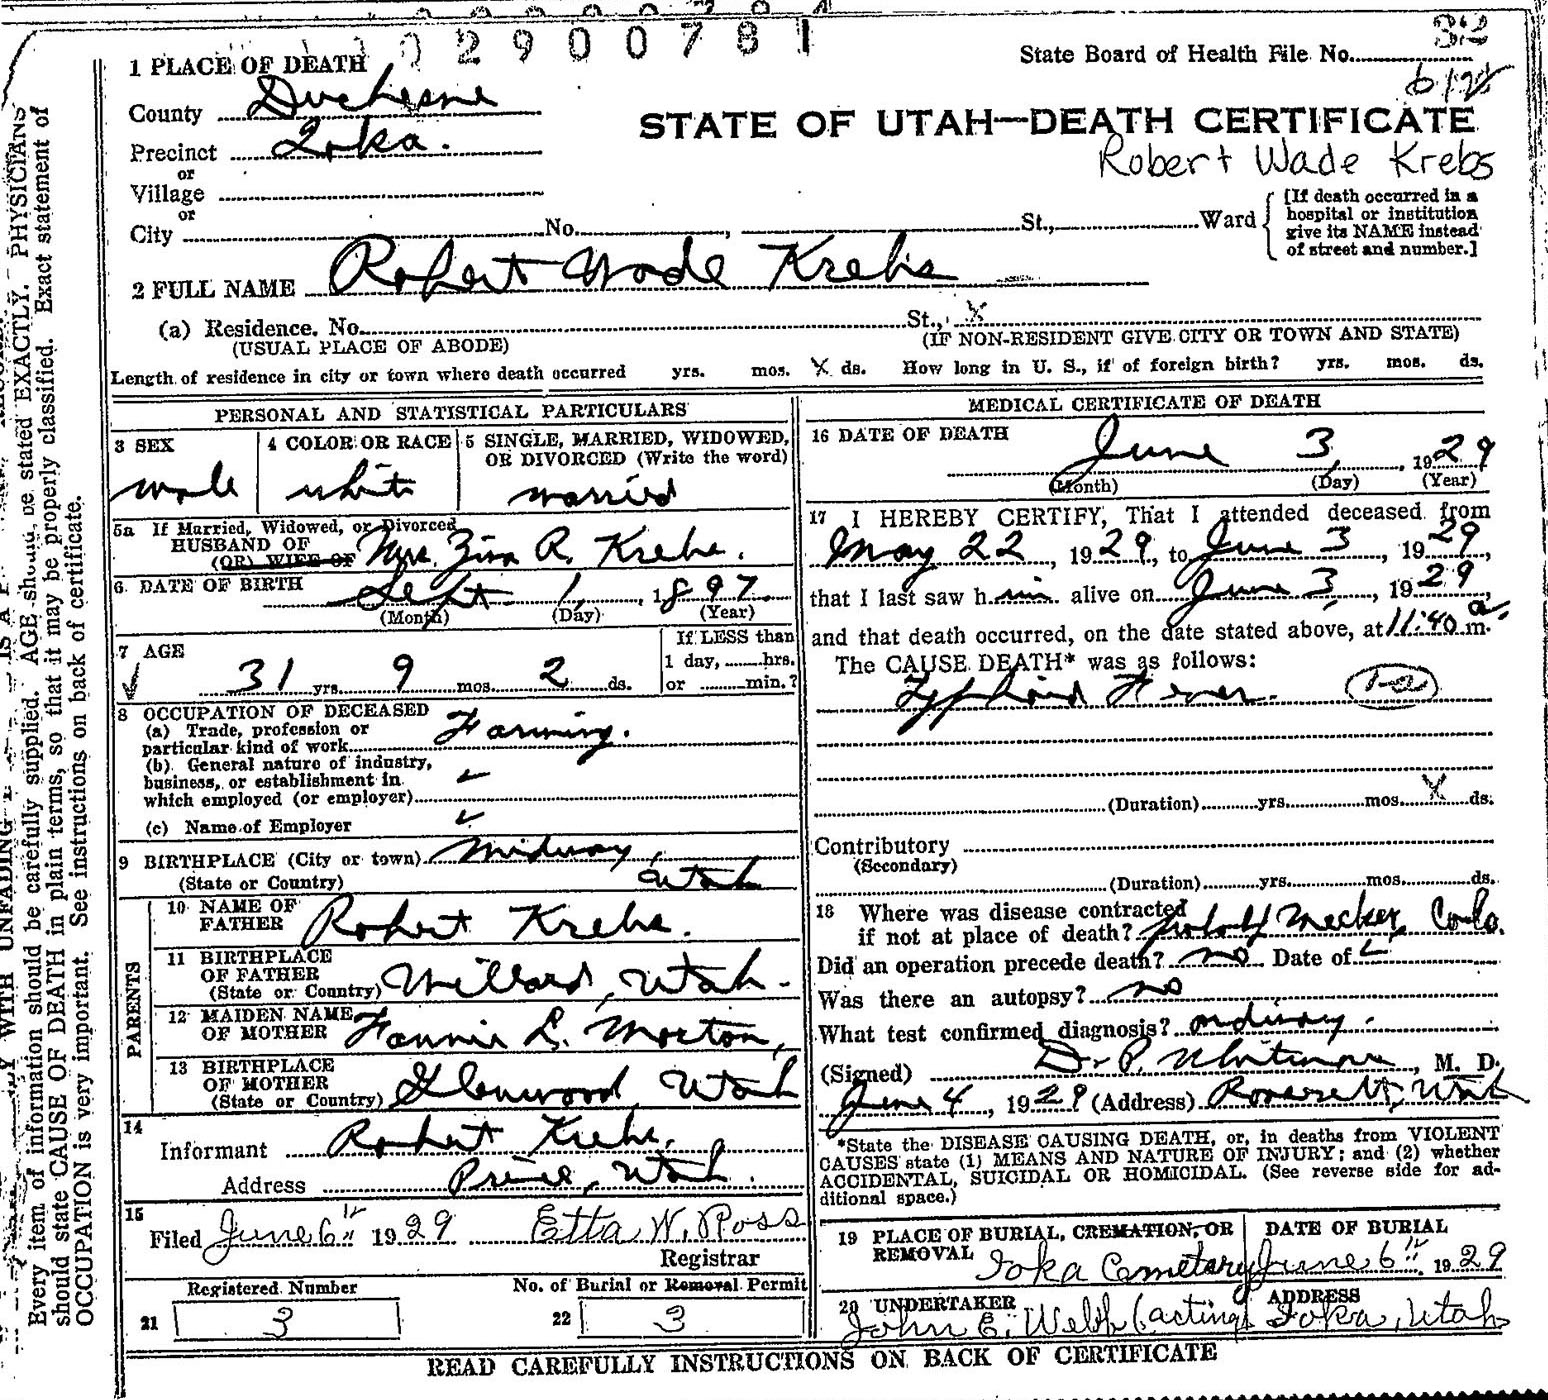 02900781
State Board of Health File No. 32
1 PLACE OF DEATH
County Duchesne
STATE OF UTAH—DEATH CERTIFICATE
Precinct Ioka.
Robert Wade Krebs
or
Village
or
City No. , St., Ward
[If death occurred in a
hospital or institution
give its NAME instead
of street and number.]
2 FULL NAME Robert Wade Krebs
(a) Residence. No. St., X
(USUAL PLACE OF ABODE) (IF NON-RESIDENT GIVE CITY OR TOWN AND STATE)
Length of residence in city or town where death occurred yrs. mos. X ds. How long in U. S., if of foreign birth? yrs. mos. ds.
PERSONAL AND STATISTICAL PARTICULARS
3 SEX 4 COLOR OR RACE 5 SINGLE, MARRIED, WIDOWED,
OR DIVORCED (Write the word)
male white married
5a If Married, Widowed, or Divorced
HUSBAND OF
(OR) WIFE OF Mrs. Zina R. Krebs.
6 DATE OF BIRTH Sept. 1, 1897
(Month) (Day) (Year)
7 AGE If LESS than
1 day, hrs.
31 yrs. 9 mos. 2 ds. or min.?
8 OCCUPATION OF DECEASED
(a) Trade, profession or
particular kind of work Farming.
(b) General nature of industry,
business, or establishment in
which employed (or employer)
(c) Name of Employer
9 BIRTHPLACE (City or town) Midway,
(State or Country) Utah
PARENTS
10 NAME OF
FATHER Robert Krebs.
11 BIRTHPLACE
OF FATHER
(State or Country) Willard, Utah.
12 MAIDEN NAME
OF MOTHER Fannie L. Morton,
13 BIRTHPLACE
OF MOTHER
(State or Country) Glenwood, Utah
14
Informant Robert Krebs.
Address Price, Utah.
15
Filed June 6th 1929 Etta W. Ross
Registrar
Registered Number No. of Burial or Removal Permit
21 3 22 3
MEDICAL CERTIFICATE OF DEATH
16 DATE OF DEATH
June 3, 1929
(Month) (Day) (Year)
17 I HEREBY CERTIFY, That I attended deceased from
May 22, 1929, to June 3, 1929,
that I last saw him alive on June 3, 1929,
and that death occurred, on the date stated above, at 11:40 a m.
The CAUSE DEATH* was as follows:
Typhoid Fever. 1-a
(Duration) yrs. mos. X ds.
Contributory
(Secondary)
(Duration) yrs. mos. ds.
18 Where was disease contracted
if not at place of death? probably Meeker, Colo.
Did an operation precede death? no Date of
Was there an autopsy? no
What test confirmed diagnosis? ordinary.
(Signed) Dr. P. Whitmore, M. D.
June 4, 1929 (Address) Roosevelt, Utah
*State the DISEASE CAUSING DEATH, or, in deaths from VIOLENT
CAUSES state (1) MEANS AND NATURE OF INJURY; and (2) whether
ACCIDENTAL, SUICIDAL OR HOMICIDAL. (See reverse side for ad-
ditional space.)
19 PLACE OF BURIAL, CREMATION, OR
REMOVAL Ioka Cemetary
DATE OF BURIAL
June 6th 1929
20 UNDERTAKER ADDRESS
John E. Webb (acting) Ioka, Utah
READ CAREFULLY INSTRUCTIONS ON BACK OF CERTIFICATE
Every item of information should be carefully supplied. AGE should be stated EXACTLY. PHYSICIANS
should state CAUSE OF DEATH in plain terms, so that it may be properly classified. Exact statement of
OCCUPATION is very important. See instructions on back of certificate.